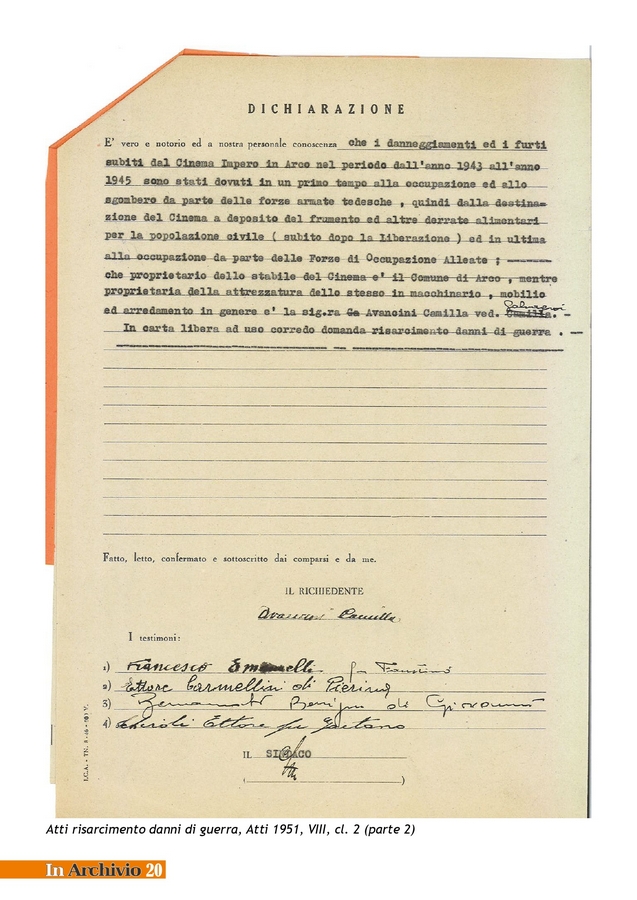 DICHIARAZIONE
E' vero e notorio ed a nostra personale conoscenza che i danneggiamenti ed i furti
subiti dal Cinema Impero in Arco nel periodo dall'anno 1943 all'anno
1945 sono stati dovuti in un primo tempo alla occupazione ed allo
sgombero da parte delle forze armate tedesche , quindi dalla destina=
zione del Cinema a deposito del frumento ed altre derrate alimentari
per la popolazione civile ( subito dopo la Liberazione ) ed in ultima
alla occupazione da parte delle Forze di Occupazione Alleate ; -------
che proprietario dello stabile del Cinema e' il Comune di Arco , mentre
proprietaria della attrezzatura dello stesso in macchinario , mobilio
ed arredamento in genere e' la sig.ra Ca Avancini Camilla ved. Camilla. -
In carta libera ad uso corredo domanda risarcimento danni di guerra . --
Fatto, letto, confermato e sottoscritto dai comparsi e da me.
IL RICHIEDENTE
Avancini Camilla
I testimoni:
1) Francesco fu Faustino
2) Ettore Carmellini di Pierino
3) di Giovanni
4) Ettore fu Gaetano
IL SINDACO
( )
Atti risarcimento danni di guerra, Atti 1951, VIII, cl. 2 (parte 2)
In Archivio 20